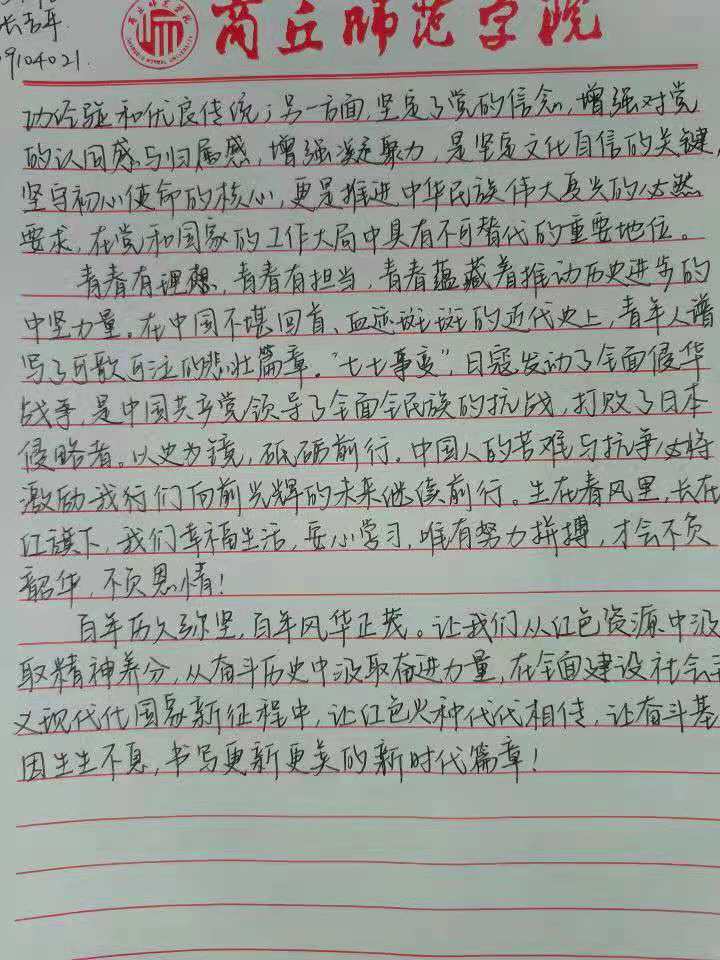 商丘师范学院
9104021.
功经验和优良传统；另一方面，坚定了党的信念，增强对党
的认同感与归属感，增强凝聚力，是坚定文化自信的关键，
坚守初心使命的核心，更是推进中华民族伟大复兴的必然
要求，在党和国家的工作大局中具有不可替代的重要地位。
青春有理想，青春有担当，青春蕴藏着推动历史进步的
中坚力量。在中国不堪回首、血迹斑斑的近代史上，青年人谱
写了可歌可泣的悲壮篇章。“七七事变”，日寇发动了全面侵华
战争，是中国共产党领导了全面全民族的抗战，打败了日本
侵略者。以史为镜，砥砺前行。中国人的苦难与抗争必将
激励我行们向前光辉的未来继续前行。生在春风里，长在
红旗下，我们幸福生活，安心学习，唯有努力拼搏，才会不负
韶华，不负恩情！
百年历久弥坚，百年风华正茂。让我们从红色资源中汲
取精神养分，从奋斗历史中汲取奋进力量，在全面建设社会主
义现代化国家新征程中，让红色火种代代相传，让奋斗基
因生生不息，书写更新更美的新时代篇章！